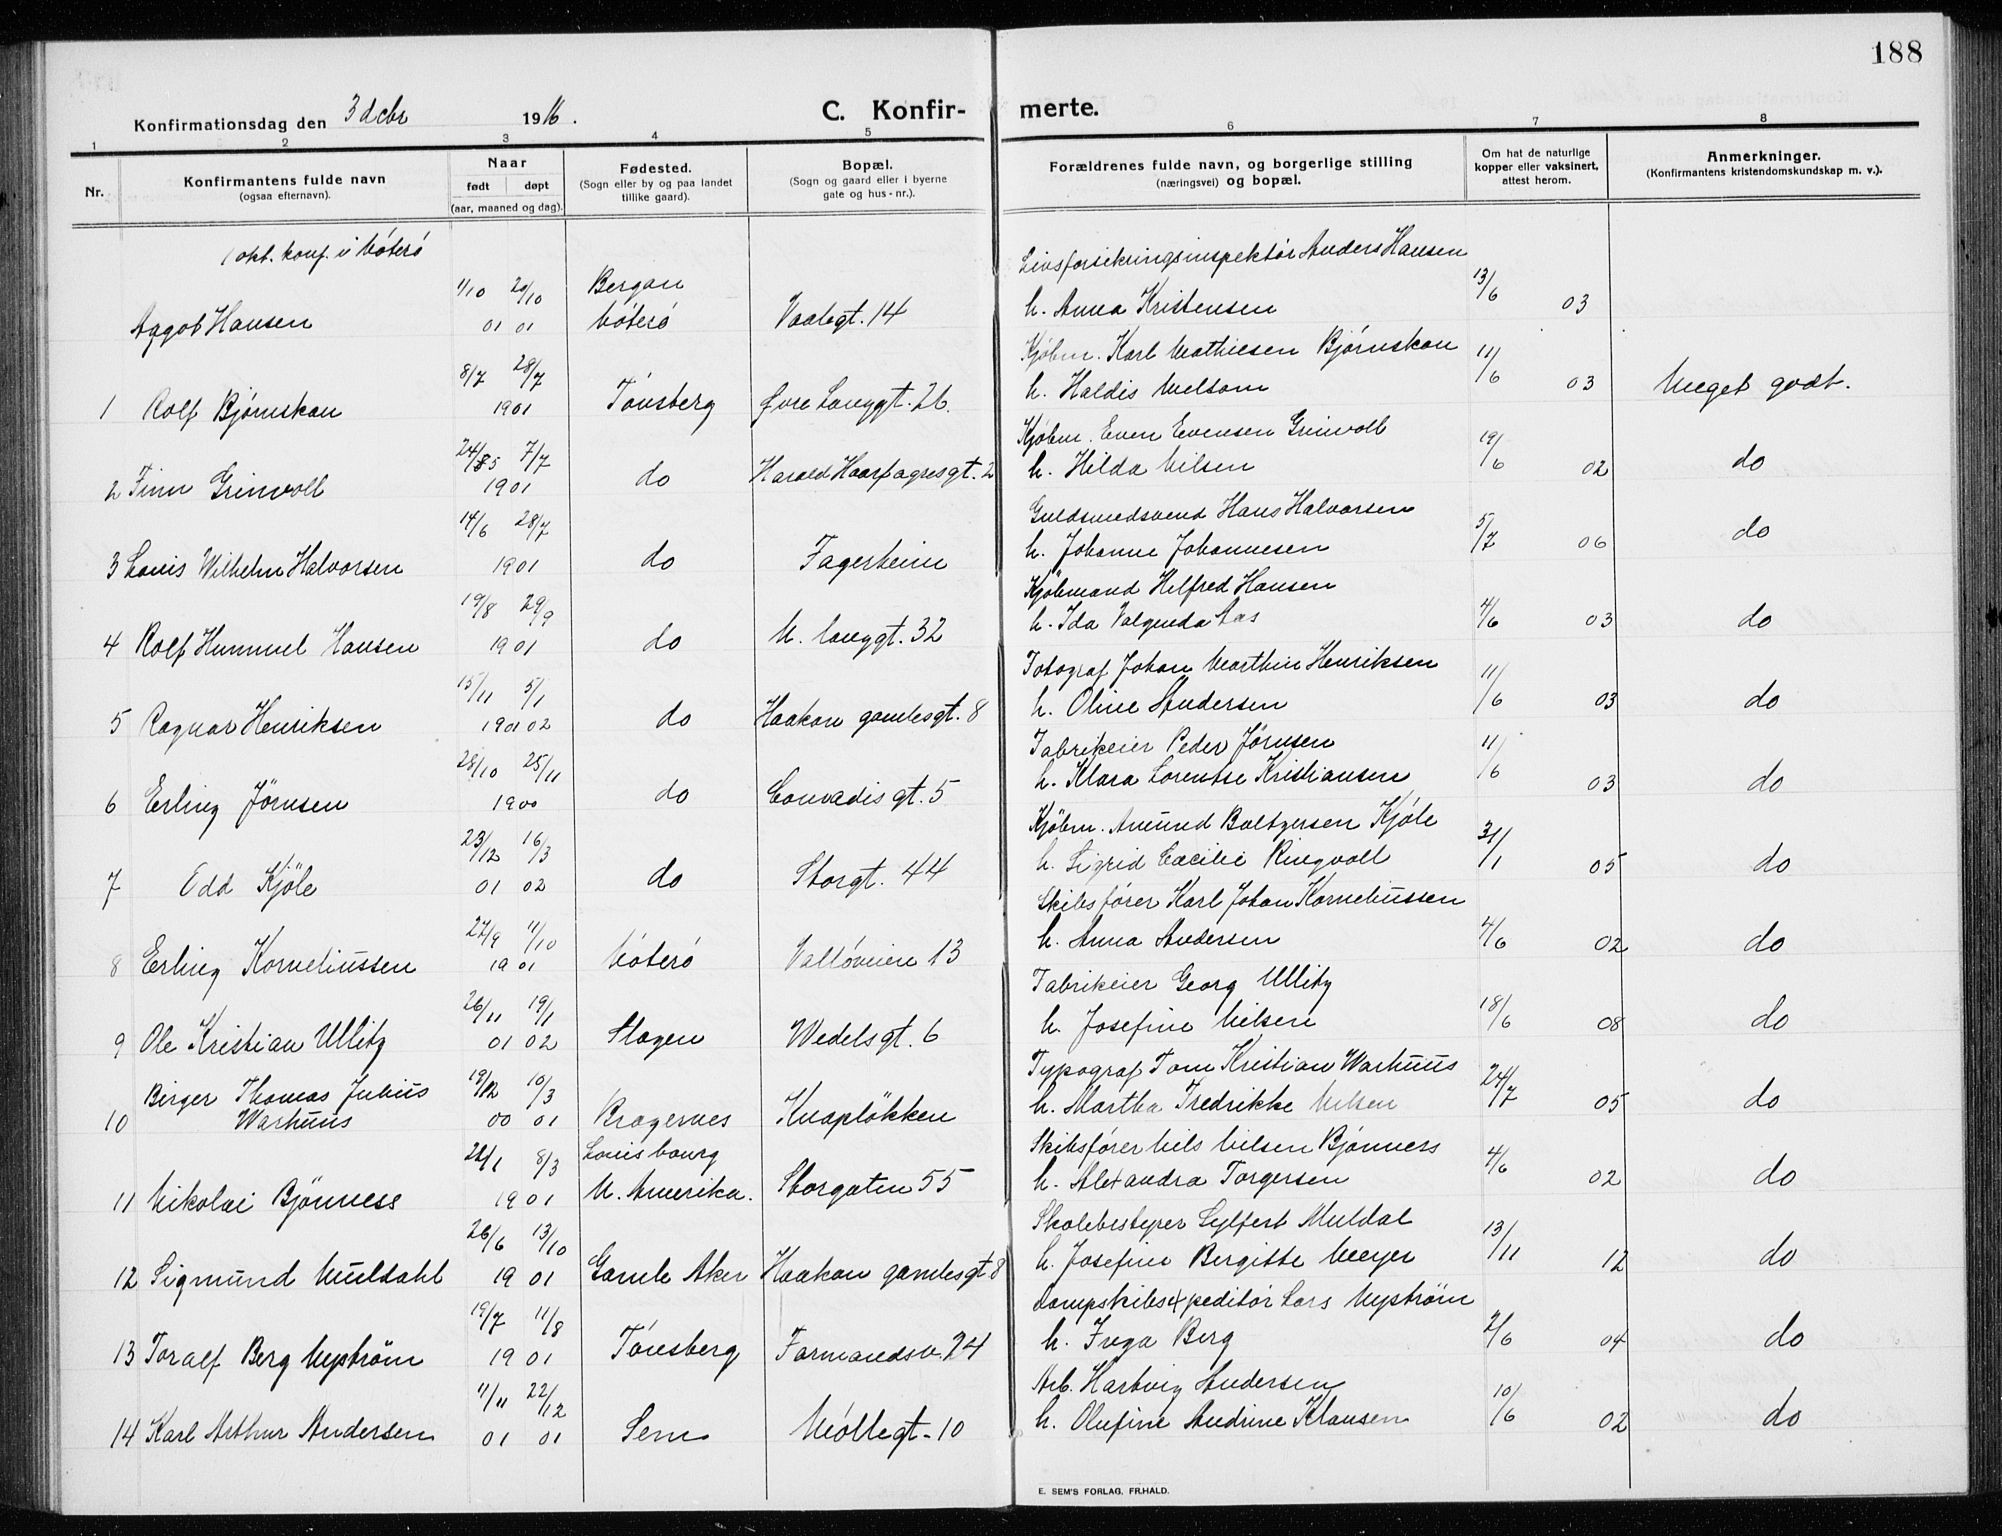 188
Konfirmationsdag den 3 dcbr 1916.
C. Konfir- merte.
1 2 3 4 5 6 7 8
Nr.
Konfirmantens fulde navn
(ogsaa efternavn).
Naar
født døpt
(aar, maaned og dag).
Fødested.
(Sogn eller by og paa landet
tillike gaard).
Bopæl.
(Sogn og gaard eller i byerne
gate og hus-nr.).
Forældrenes fulde navn, og borgerlige stilling
(næringsvei) og bopæl.
Om hat de naturlige
kopper eller vaksinert,
attest herom.
Anmerkninger.
(Konfirmantens kristendomskundskap m. v.).
1 okt. konf. i Nøterø
Livsforsikringsinspektør Anders Hansen
1/10 20/10 Bergan 13/6
Aagot Hansen 01 01 Nøterø Vaalegt. 14 h. Anna Kristensen 03
Kjøbm. Karl Mathiesen Bjørnskau
8/7 28/7 11/6
1 Rolf Bjørnskau 1901 Tønsberg Øvre Langgt. 26. h. Haldis Melsom 03 Meget godt.
Kjøbm. Even Evensen Grinvoll
24/5 7/7 19/6
2 Finn Grinvoll 1901 do Harald Haarfagresgt. 2 h. Hilda Nilsen 02 do
Guldsmedsvend Hans Halvorsen
14/6 28/7 5/7
3 Louis Wilhelm Halvorsen 1901 do Fagerheim h. Johanne Johannesen 06 do
Kjøbmand Hilfred Hansen
19/8 29/9 4/6
4 Rolf Hummel Hansen 1901 do N. Langgt. 32 h. Ida Valgerda Aas 03 do
Fotograf Johan Marthin Henriksen
15/11 5/1 11/6
5 Ragnar Henriksen 1901 02 do Haakon gamlesgt. 8 h. Oline Andersen 03 do
Fabrikeier Peder Jørnsen
28/10 25/11 11/6
6 Erling Jørnsen 1900 do Conradisgt. 5 h. Klara Lorentse Kristiansen 03 do
Kjøbm. Amund Baltzersen Kjøle
23/12 16/3 31/1
7 Odd Kjöle 01 02 do Storgt. 44 h. Sigrid Cæcilie Ringvoll 05 do
Skibsfører Karl Johan Korneliussen
27/9 11/10 4/6
8 Erling Korneliussen 1901 Nøterø Valløveien 13 h. Anna Andersen 02 do
Fabrikeier Georg Ullitz
26/11 19/1 18/6
9 Ole Kristian Ullitz 01 02 Slagen Wedelsgt. 6 h. Josefine Nilsen 08 do
Typograf Tom Kristian Warhuus
Birger Thomas Julius 19/12 10/3 24/7
10 Warhuus 00 01 Bragernes Knapløkken h. Martha Fredrikke Nilsen 05 do
Skibsfører Nils Nilsen Bjønness
22/1 8/3 Louisbourg 4/6
11 Nikolai Bjønness 1901 N. Amerika. Storgaten 55 h. Alexandra Torgersen 02 do
Skolebestyrer Sylfert Muldal
26/6 13/10 13/11
12 Sigmund Muldahl 1901 Gamle Aker Haakon gamlesgt 8 h. Josefine Bergitte Meyer 12 do
Dampskibsexpeditør Lars Nystrøm
19/7 11/8 2/6
13 Toralf Berg Nystrøm 1901 Tønsberg Formandsv. 24 h. Inga Berg 04 do
Arb. Hartvig Andersen
11/11 22/12 10/6
14 Karl Arthur Andersen 01 01 Sem Møllegt. 10 h. Olufine Andrine Klausen 02 do
E. SEM'S FORLAG, FR.HALD.